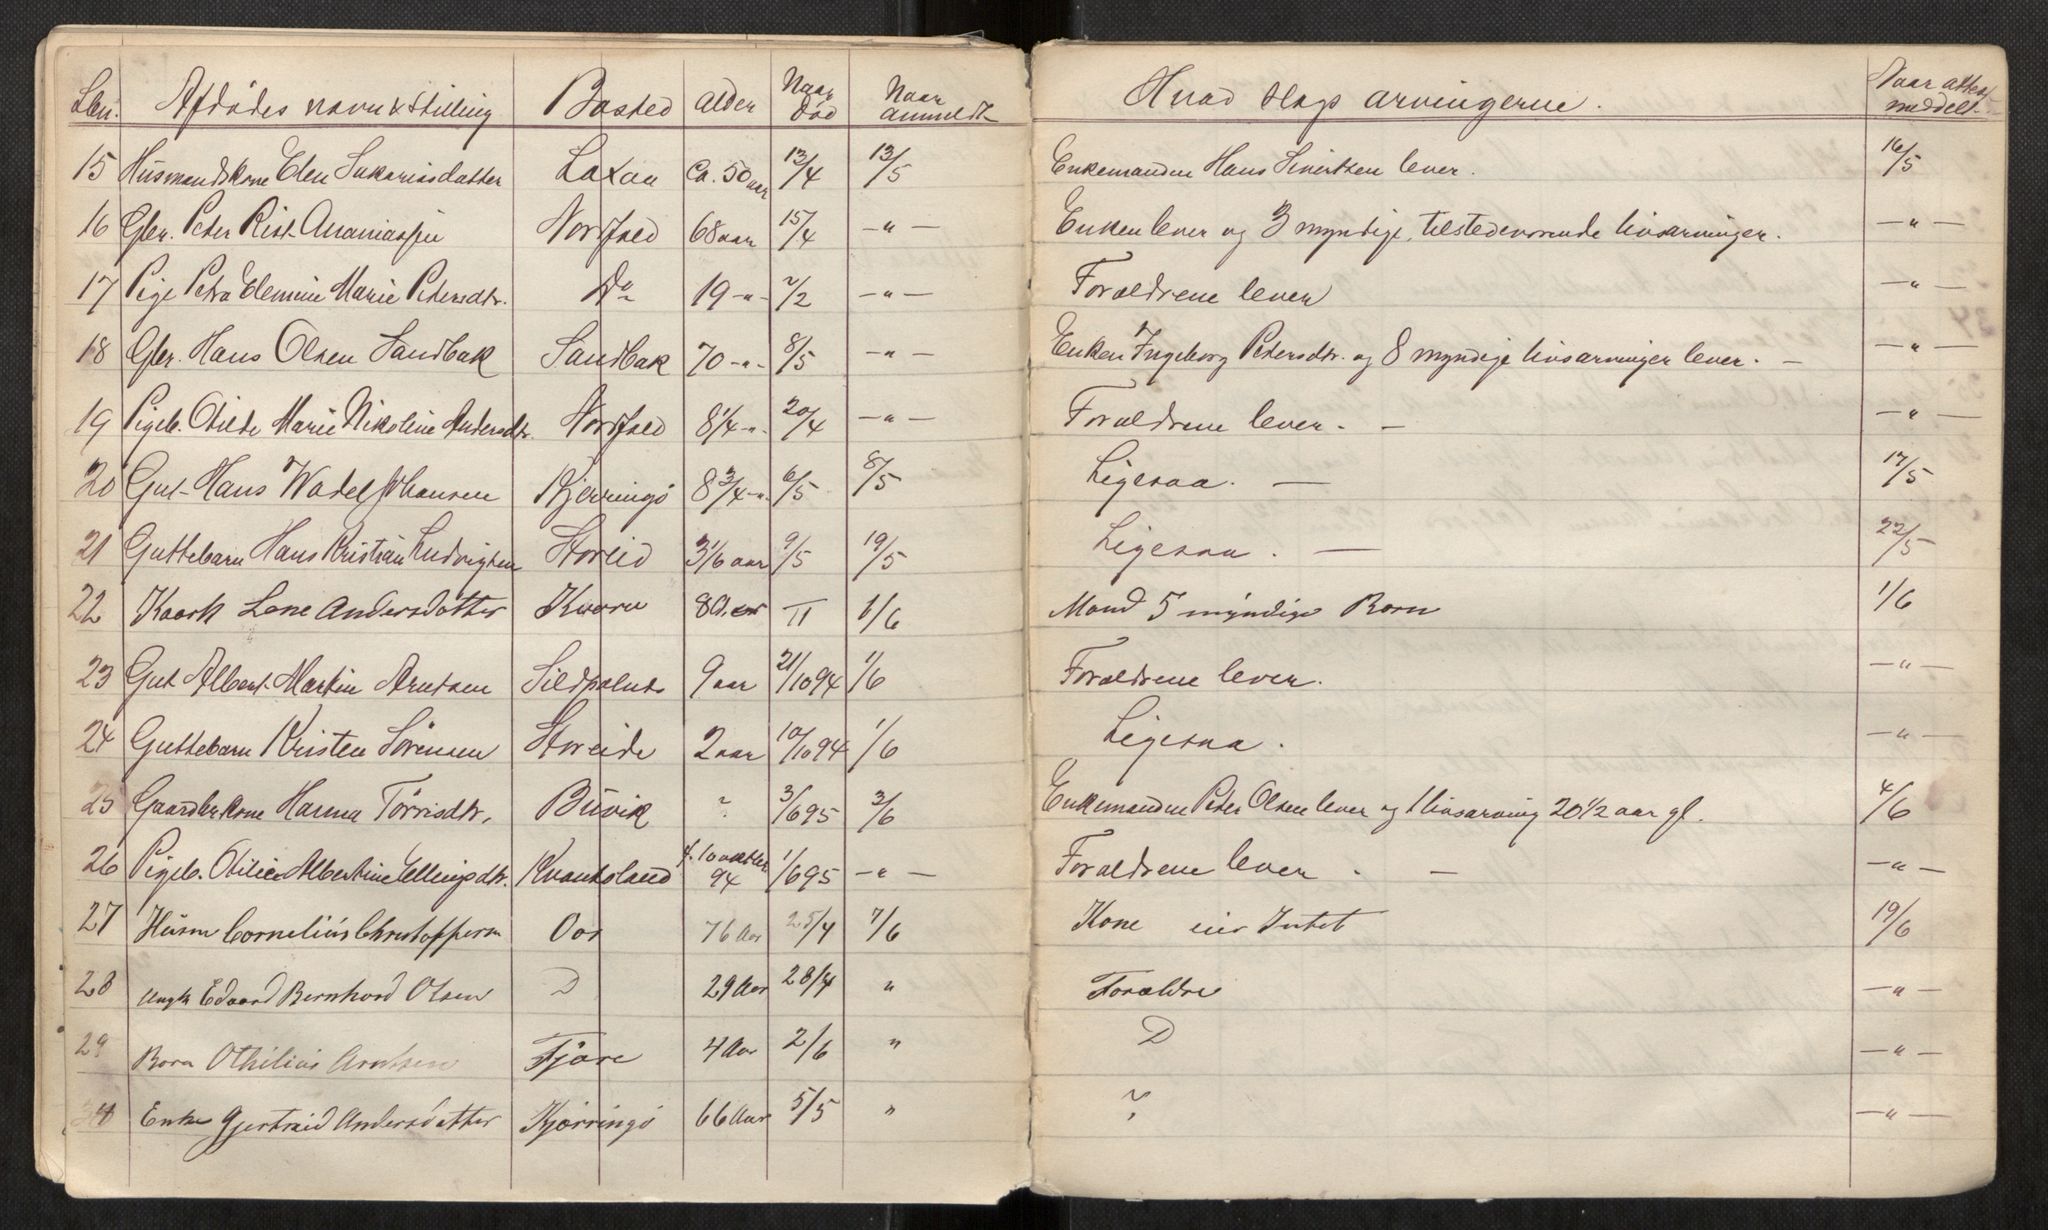 Lbn. Afdödes navn & Stilling Bosted alder Naar död Naar anmeldt Hvad slags arvingerne. Naar attest meddelt
15 Husmandskone Elen Sakariasdatter Laxaa Ca. 50 aar 13/4 13/5 Enkemanden Hans Sivertsen lever. 16/5
16 Gbr. Peter Rist Ananiassen Nordfold 68 aar 15/4 —"— Enken lever og 3 myndige, tilstedeværende livsarvinger. —"—
17 Pige Petra Elemine Marie Petersdtr. Do 19 -"- 2/2 —"— Forældrene lever —"—
18 Gbr. Hans Olsen Sandbak Sandbak 70 -"- 8/5 —"— Enken Ingeborg Petersdtr. og 8 myndige livsarvinger lever. — —"—
19 Pigeb. Otilde Marie Nikoline Andersdtr. Nordfold 8 1/4 -"- 20/4 —"— Forældrene lever. — —"—
20 Gut Hans Wadel Johansen Kjerringö 8 3/4 -"- 6/5 8/5 Ligesaa. — 17/5
21 Guttebarn Hans Kristian Ludvigsen Storeid 3 1/6 aar 9/5 19/5 Ligesaa. — 22/5
22 Lene Andersdatter Kvarv 80 aar 1/6 Mand 5 myndige Born 1/6
23 Gut Albert Martin Arntsen 9 aar 21/10 94 1/6 Forældrene lever. —"—
24 Guttebarn Kristen Sörensen Storeide 2 aar 10/10 94 1/6 Ligesaa. —"—
25 Gaardbr. kone Hanna Törrisdtr. Buvik ? 3/6 95 3/6 Enkemanden Peter Olsen lever og 1 livsarving 20 1/2 aar gl. 4/6
26 Pigeb. Otilie Albertine Ellingsdtr. 94 1/6 95 —"— Forældrene lever. — —"—
27 Husm Cornelius Christoffersn 76 Aar 25/4 7/6 Kone eier Intet 19/6
28 Ungk Edvard Bernhard Olsen D 29 Aar 28/4 " Forældre —"—
29 Barn Othilius Arntsen Fjære 4 Aar 2/6 " D —"—
30 Enke Gjertraid Andersdatter Kjærringö 66 Aar 5/5 " ? —"—